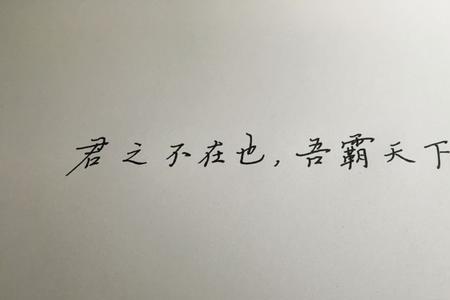 君之不在也,吾霸天下